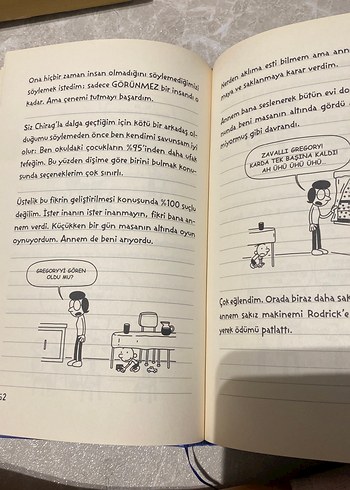 Ona hiçbir zaman insan olmadığını söylemediğimizi
söylemek istedim; sadece GÖRÜNMEZ bir insandı o
kadar. Ama çenemi tutmayı başardım.
Siz Chirag'la dalga geçtiğim için kötü bir arkadaş ol-
duğumu söylemeden önce ben kendimi savunsam iyi
olur: Ben okuldaki çocukların %95'inden daha ufak
tefeğim. Bu yüzden dişime göre birini bulmak konu-
sunda seçeneklerim çok sınırlı.
Üstelik bu fikrin geliştirilmesi konusunda %100 suçlu
değilim. İster inanın ister inanmayın, fikri bana an-
nem verdi. Küçükken bir gün masanın altında oyun
oynuyordum. Annem de beni arıyordu.
GREGORY'Yİ GÖREN
OLDU MU?
52
Nerden aklıma esti bilmem ama ann
maya ve saklanmaya karar verdim.
Annem bana seslenerek bütün evi do
nunda beni masanın altında gördü
miyormuş gibi davrandı.
ZAVALLI GREGORY!
KARDA TEK BAŞINA KALDI!
AH ÜHÜ ÜHÜ ÜHÜ...
Çok eğlendim. Orada biraz daha sak
annem sakız makinemi Rodrick'e
yerek ödümü patlattı.